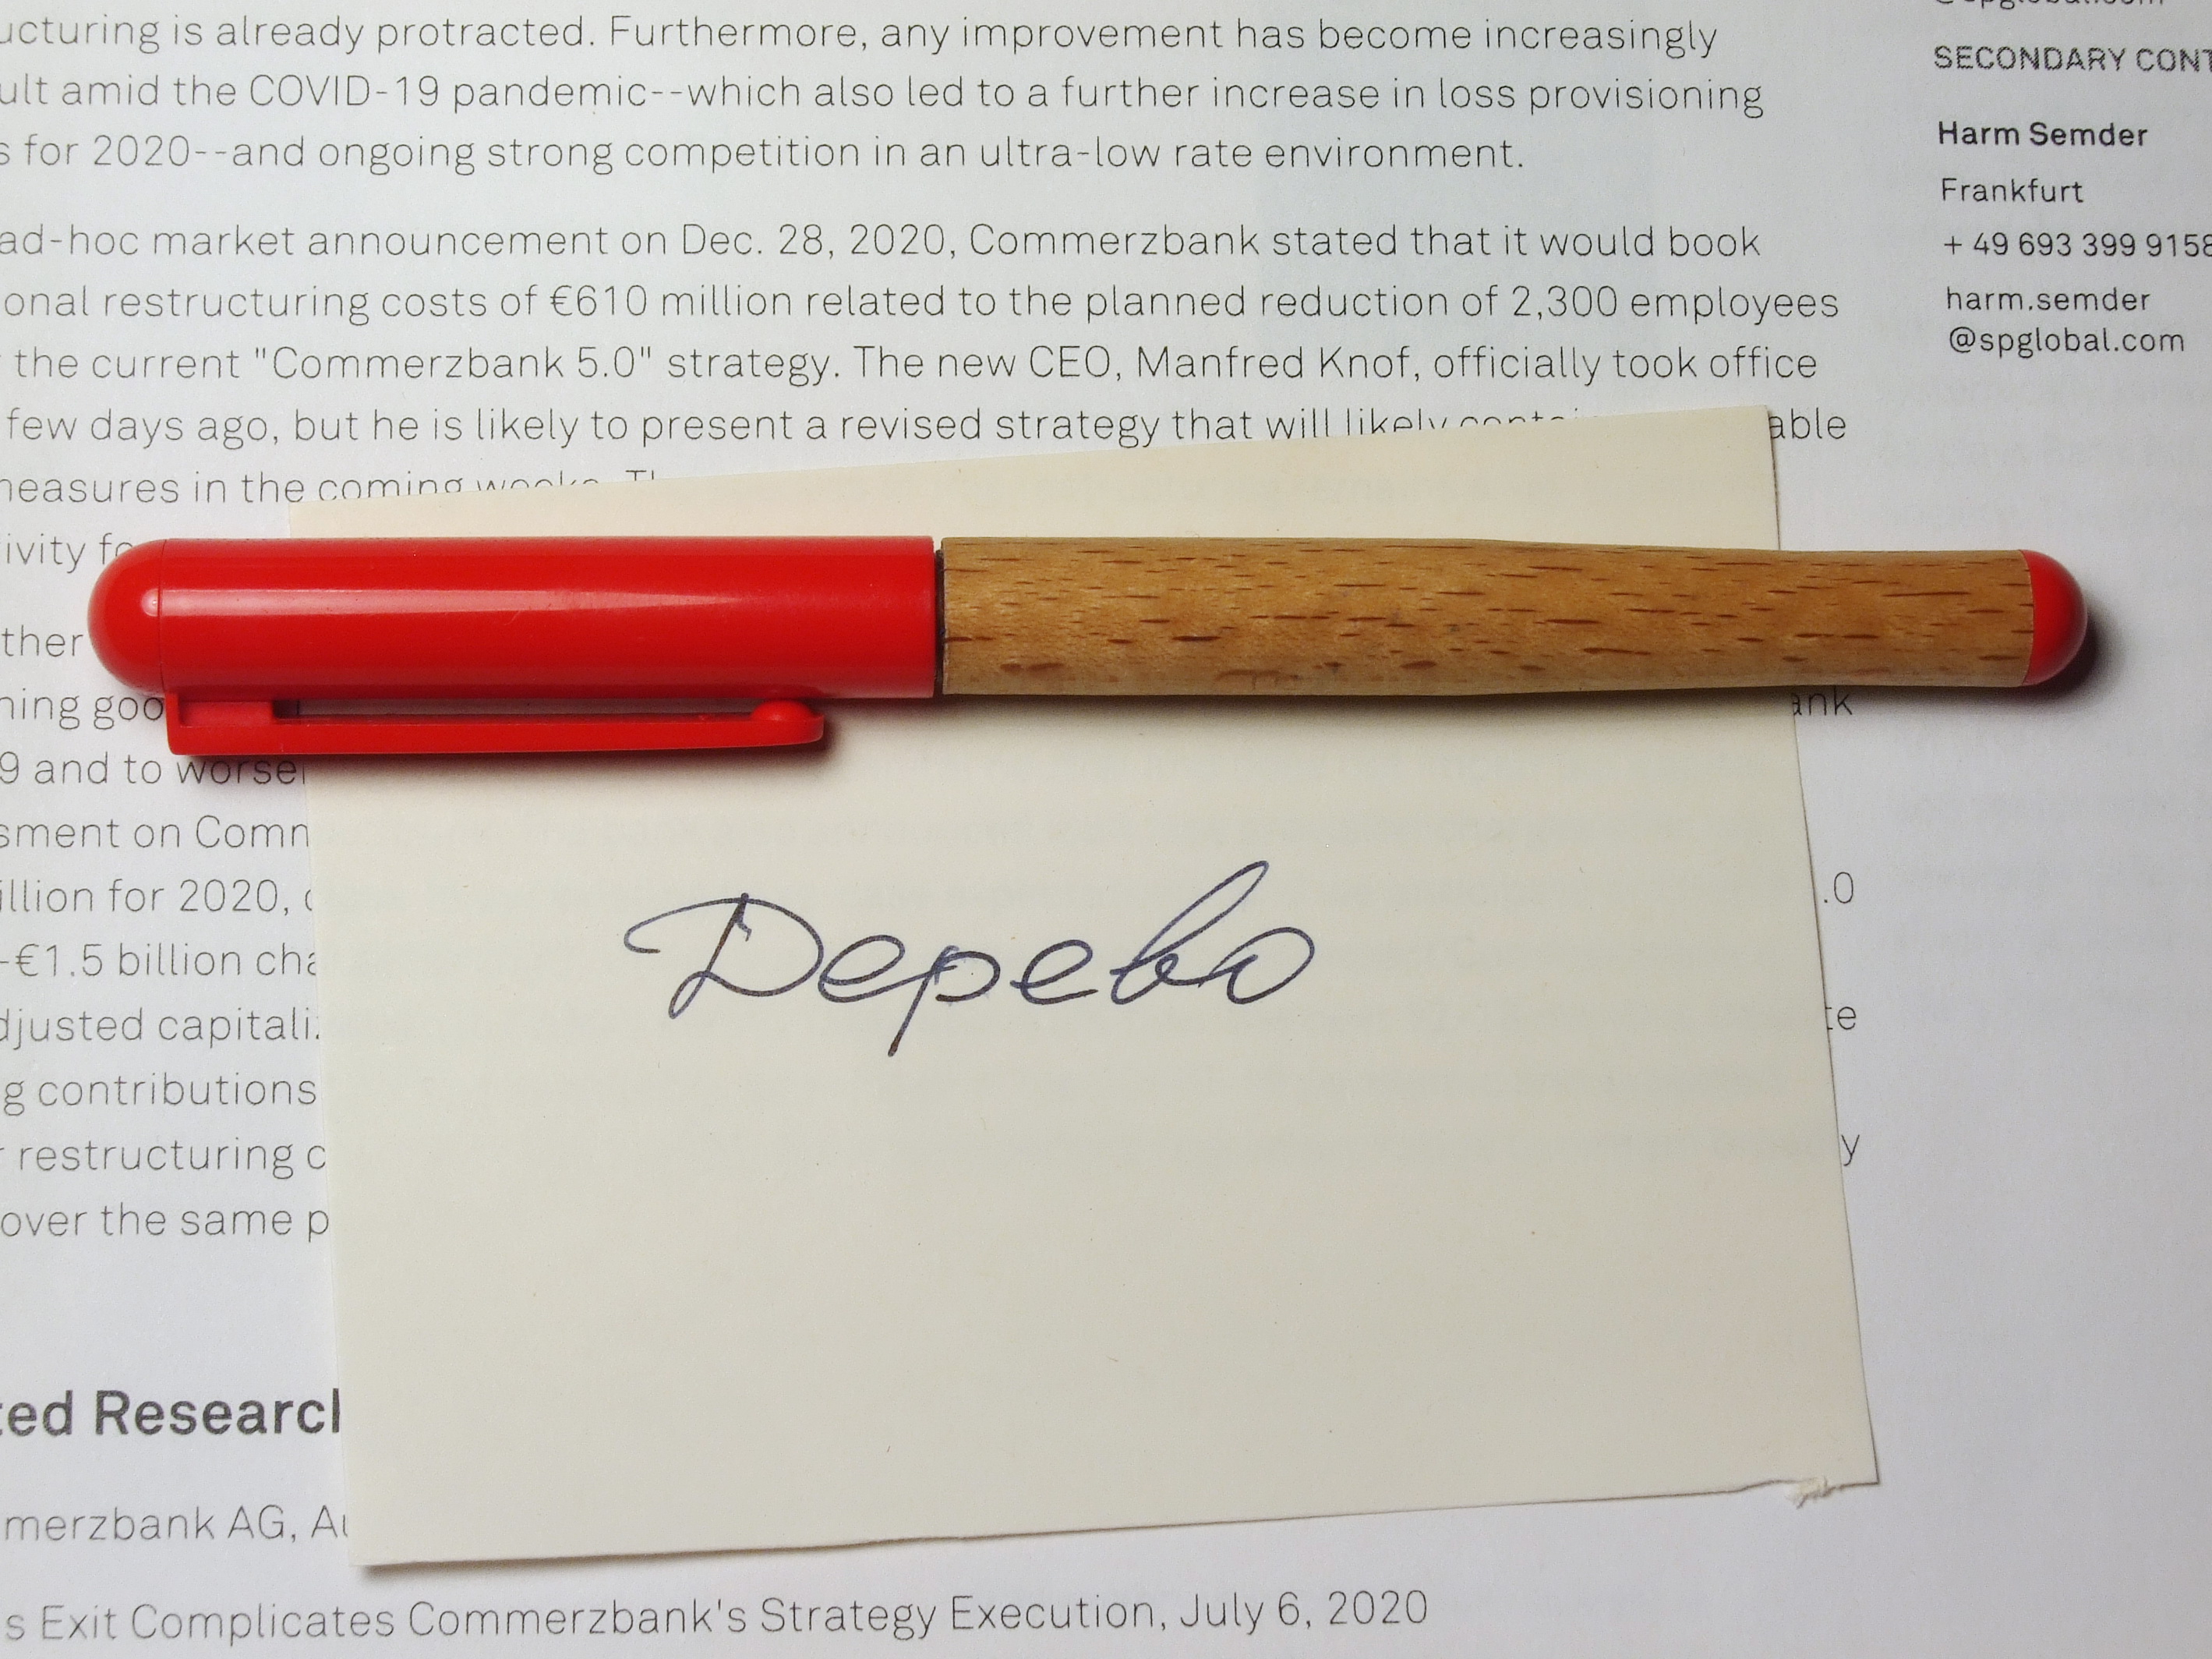 ucturing is already protracted. Furthermore, any improvement has become increasingly
ult amid the COVID-19 pandemic--which also led to a further increase in loss provisioning
s for 2020--and ongoing strong competition in an ultra-low rate environment.
ad-hoc market announcement on Dec. 28, 2020, Commerzbank stated that it would book
onal restructuring costs of €610 million related to the planned reduction of 2,300 employees
the current "Commerzbank 5.0" strategy. The new CEO, Manfred Knof, officially took office
few days ago, but he is likely to present a revised strategy that will likely able
neasures in the coming
ivity
ther
ning goo ank
9 and to worse
sment on Comm
illion for 2020, .0
-€1.5 billion cha
djusted capitali te
g contributions
restructuring c y
over the same p
ted Research
merzbank AG, Au
s Exit Complicates Commerzbank's Strategy Execution, July 6, 2020
SECONDARY CONT
Harm Semder
Frankfurt
+ 49 693 399 9158
harm.semder
@spglobal.com
Дерево